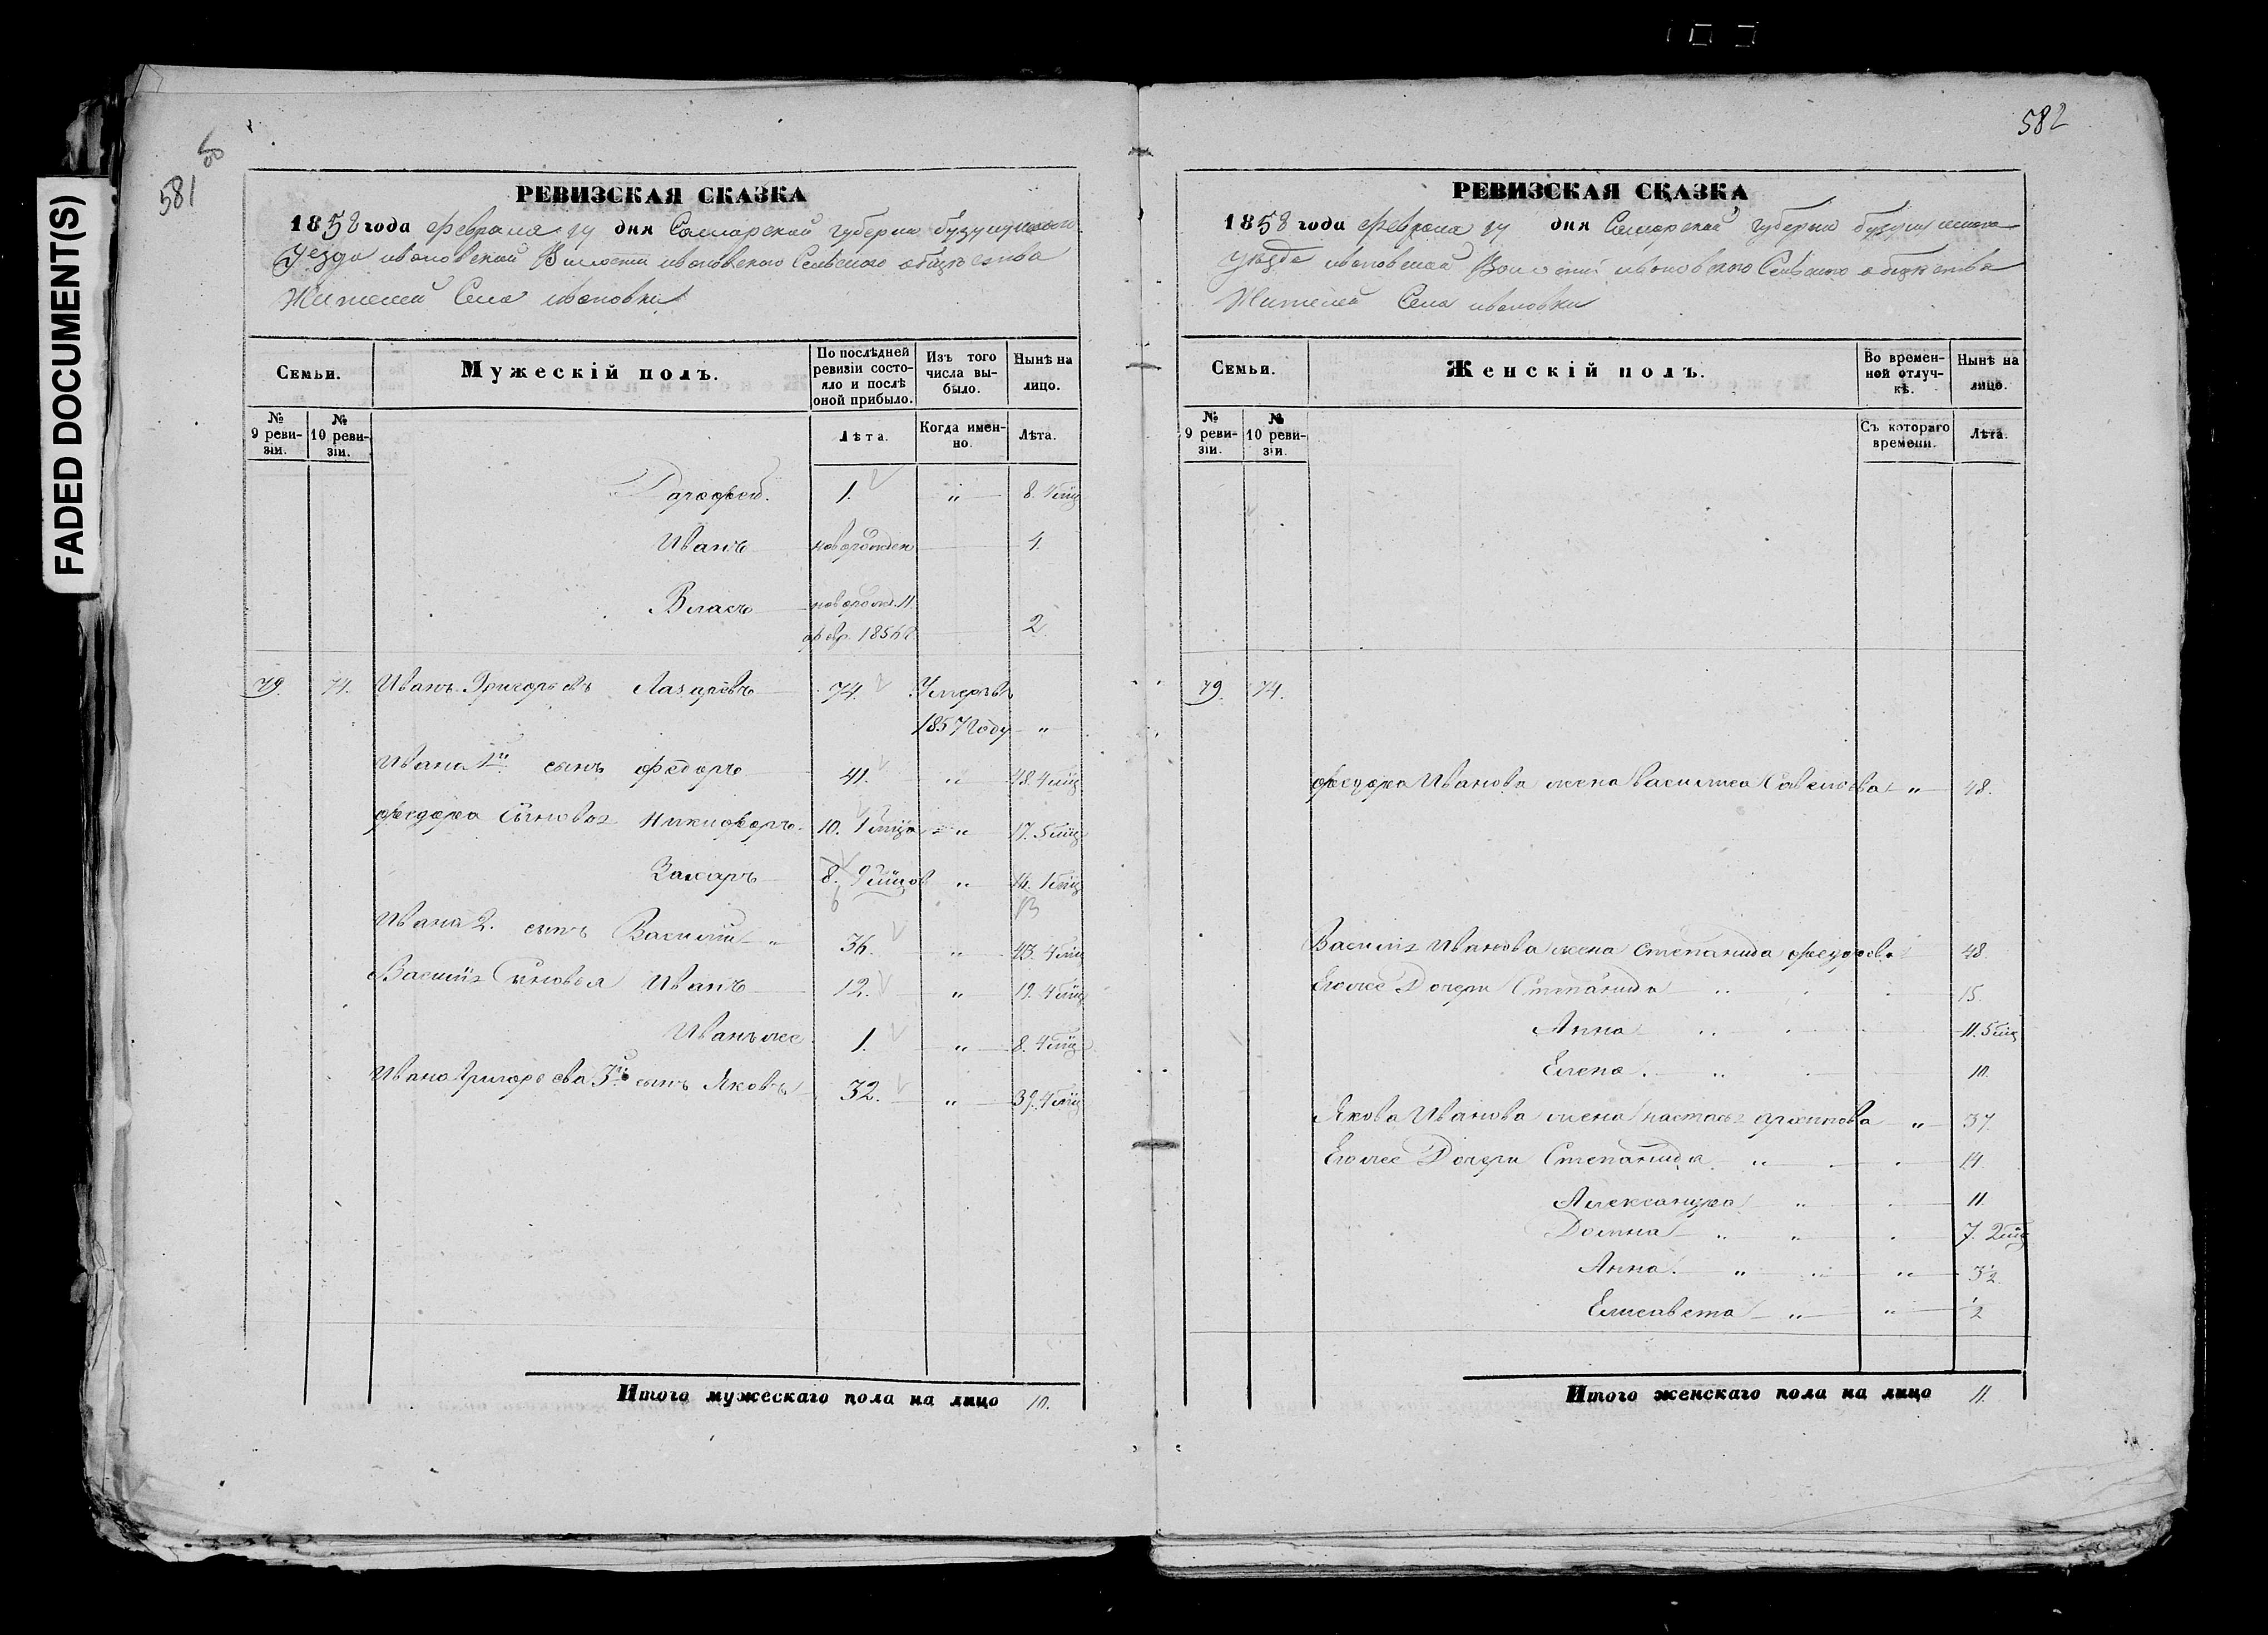 FADED DOCUMENT(S)
581
РЕВИЗСКАЯ СКАЗКА
1858 года Февраля 14 дня Самарской губерніи бузулуцкаго
Уезда ивановской Волости ивановскаго Сельскаго общества
Жителей Села ивановки
Семьи.
Мужескій полъ.
По послѣдней ревизіи состояло и послѣ оной прибыло.
Изъ того числа выбыло.
Нынѣ на лицо.
№ 9 ревизіи.
№ 10 ревизіи.
Лѣта.
Когда именно.
Лѣта.
1. " 8. 4 мц
Иванъ новорожден 4
Власъ новорожд. 11 февр. 1856 2.
79. 74. Иванъ Григорьевъ Лазаревъ 74. Умеръ въ 1857 году "
Ивана 1й сынъ Федоръ 41. " 48. 4 мц
Федора Сыновья Никифоръ 10. 1 мца " 17. 5 мц
Захаръ 8. 9 мцов " 14. 1 мц
6
Ивана 2. сынъ Василій " 36. " 43. 4 мц
Василія Сыновья Иванъ 12. " 19. 4 мц
Иванъ же 1. " 8. 4 мц
Ивана Григорьева 3й сынъ Яковъ 32. " 39. 4 мц
Итого мужескаго пола на лицо 10.
582
РЕВИЗСКАЯ СКАЗКА
1858 года Февраля 14 дня Самарской губерніи бузулуцкаго
Уѣзда ивановской Волости ивановскаго Сельскаго общества
Жителей Села ивановки
Семьи.
Женскій полъ.
Во временной отлучкѣ.
Нынѣ на лицо.
№ 9 ревизіи.
№ 10 ревизіи.
Съ котораго времени.
Лѣта.
79. 74.
Федора Иванова жена Василиса Савельева " 48.
Василія Иванова жена Степанида Федорова 48.
Егоже Дочери Степанида " 15.
Анна " 11. 5 мц
Елена. " 10.
Якова Иванова жена настасья архипова " 37
Егоже Дочери Степанида " 14.
Александра " 11.
Домна " " 7. 2 мц
Анна. " " " 3½
Елисавета " " ½
Итого женскаго пола на лицо 11.